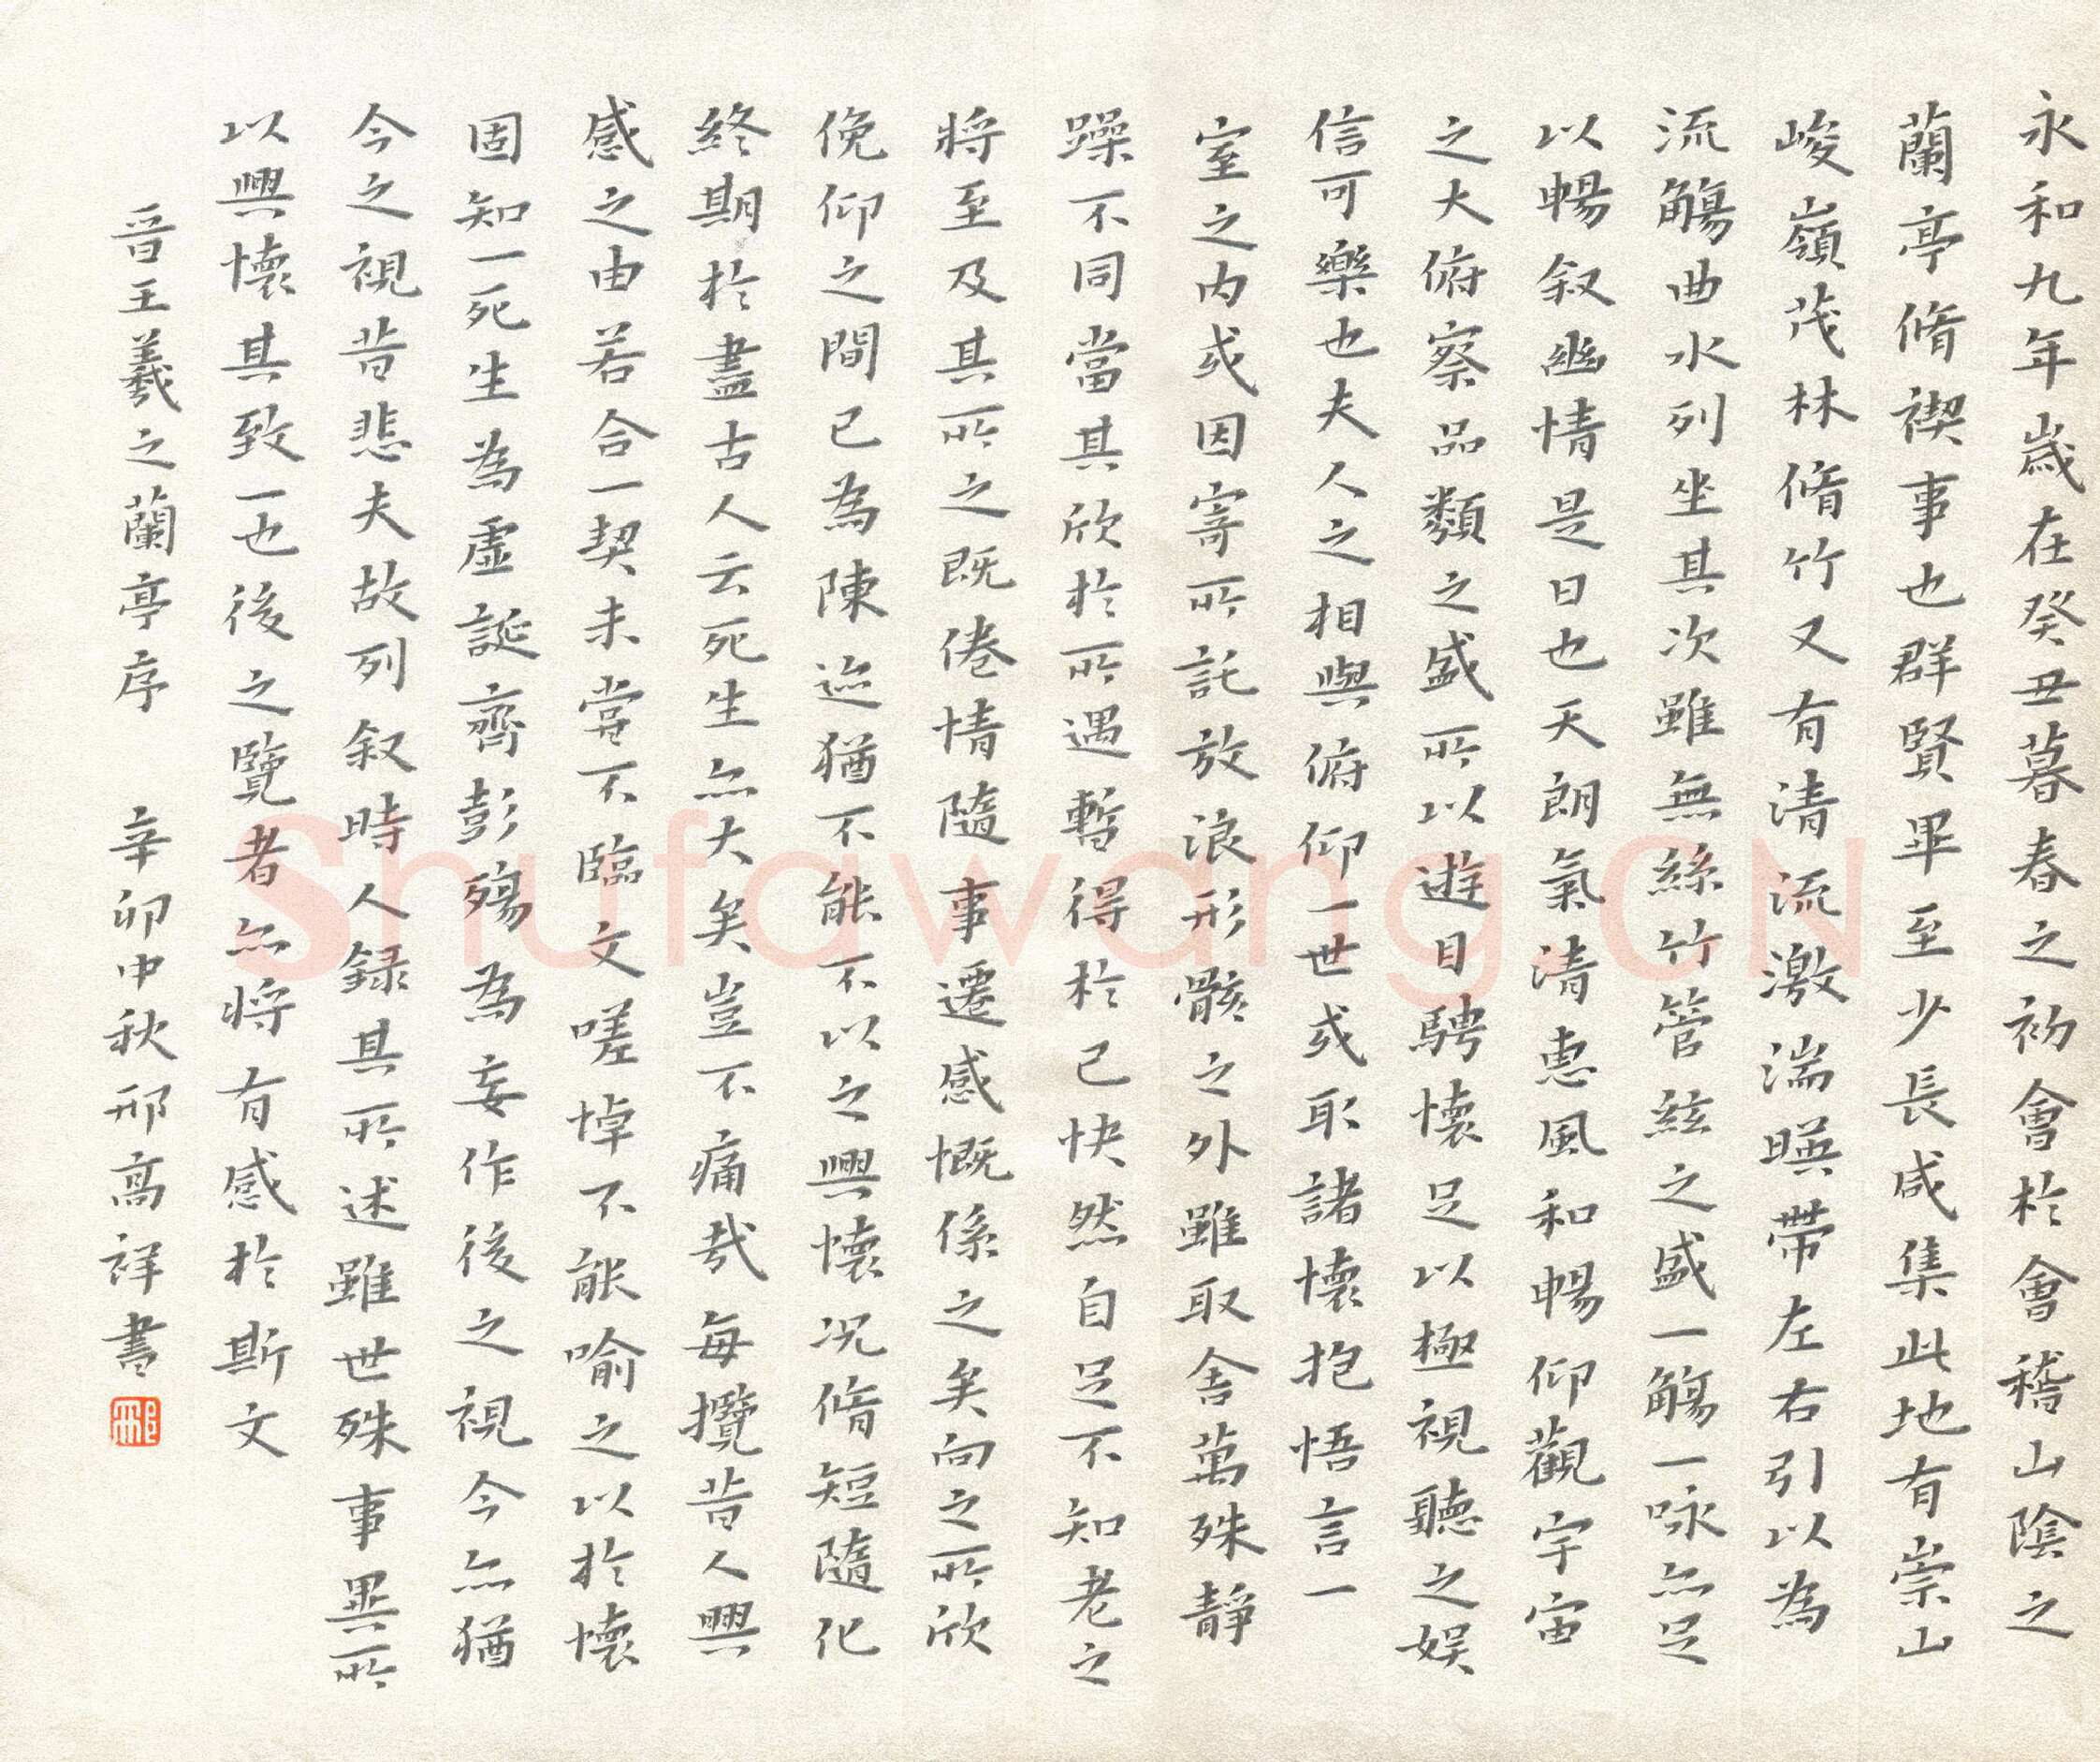 永和九年歲在癸丑暮春之初會於會稽山陰之
蘭亭脩禊事也群賢畢至少長咸集此地有崇山
峻嶺茂林脩竹又有清流激湍暎帶左右引以為
流觴曲水列坐其次雖無絲竹管絃之盛一觴一咏亦足
以暢叙幽情是日也天朗氣清惠風和暢仰觀宇宙
之大俯察品類之盛所以遊目騁懷足以極視聽之娛
信可樂也夫人之相與俯仰一世或取諸懷抱悟言一
室之内或因寄所託放浪形骸之外雖取舍萬殊靜
躁不同當其欣於所遇暫得於己快然自足不知老之
將至及其所之既倦情隨事遷感慨係之矣向之所欣
俛仰之間已為陳迹猶不能不以之興懷况脩短隨化
終期於盡古人云死生亦大矣豈不痛哉每攬昔人興
感之由若合一契未嘗不臨文嗟悼不能喻之以於懷
固知一死生為虛誕齊彭殤為妄作後之視今亦猶
今之視昔悲夫故列叙時人録其所述雖世殊事異所
以興懷其致一也後之覽者亦將有感於斯文
晉王羲之蘭亭序 辛卯中秋邢高祥書
邢
Shufawang.CN